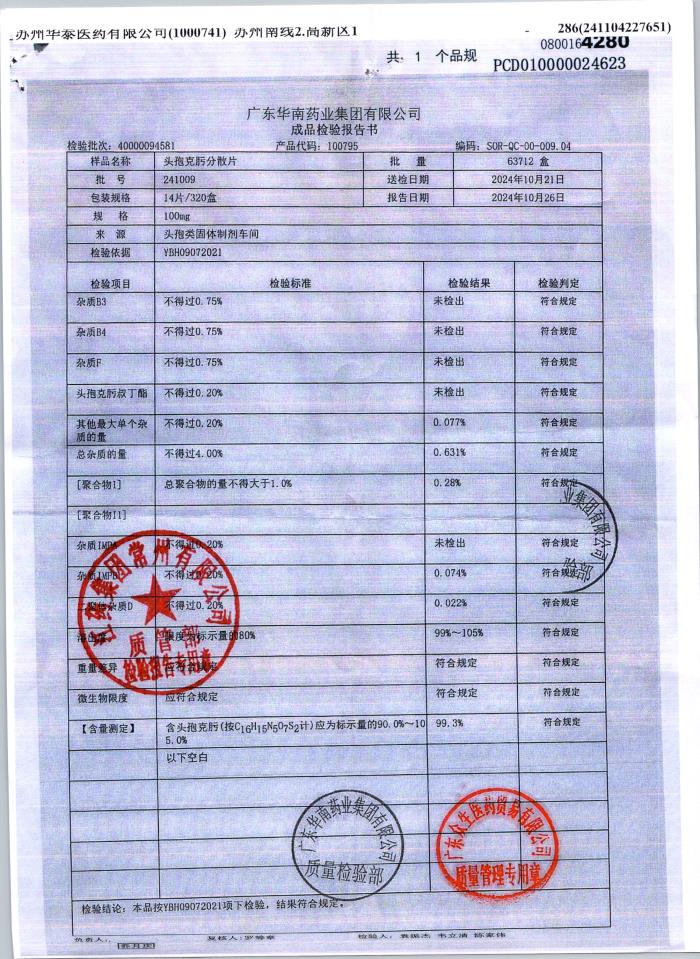 苏州华泰医药有限公司(1000741) 苏州南线2.高新区1 - 286(241104227651)
0800164280
共: 1 个品规 PCD010000024623
广东华南药业集团有限公司
成品检验报告书
检验批次: 40000094581 产品代码: 100795 编码: SOR-QC-00-009.04
样品名称 头孢克肟分散片 批 量 63712 盒
批 号 241009 送检日期 2024年10月21日
包装规格 14片/320盒 报告日期 2024年10月26日
规 格 100mg
来 源 头孢类固体制剂车间
检验依据 YBH09072021
检验项目 检验标准 检验结果 检验判定
杂质B3 不得过0.75% 未检出 符合规定
杂质B4 不得过0.75% 未检出 符合规定
杂质F 不得过0.75% 未检出 符合规定
头孢克肟叔丁酯 不得过0.20% 未检出 符合规定
其他最大单个杂质的量 不得过0.20% 0.077% 符合规定
总杂质的量 不得过4.00% 0.631% 符合规定
[聚合物1] 总聚合物的量不得大于1.0% 0.28% 符合规定
[聚合物I1]
杂质IMPA 不得过0.20% 未检出 符合规定
杂质IMPB 不得过0.20% 0.074% 符合规定
二聚体杂质D 不得过0.20% 0.022% 符合规定
溶出度 限度为标示量的80% 99%~105% 符合规定
重量差异 应符合规定 符合规定 符合规定
微生物限度 应符合规定 符合规定 符合规定
【含量测定】 含头孢克肟(按C16H15N5O7S2计)应为标示量的90.0%~105.0% 99.3% 符合规定
以下空白
业集团有限公司
检验部
集团常州有限公司
质管部
检验报告专用章
广东华南药业集团有限公司
质量检验部
广东众生医药贸易有限公司
质量管理专用章
检验结论: 本品按YBH09072021项下检验, 结果符合规定。
负责人: 复核人: 检验人: